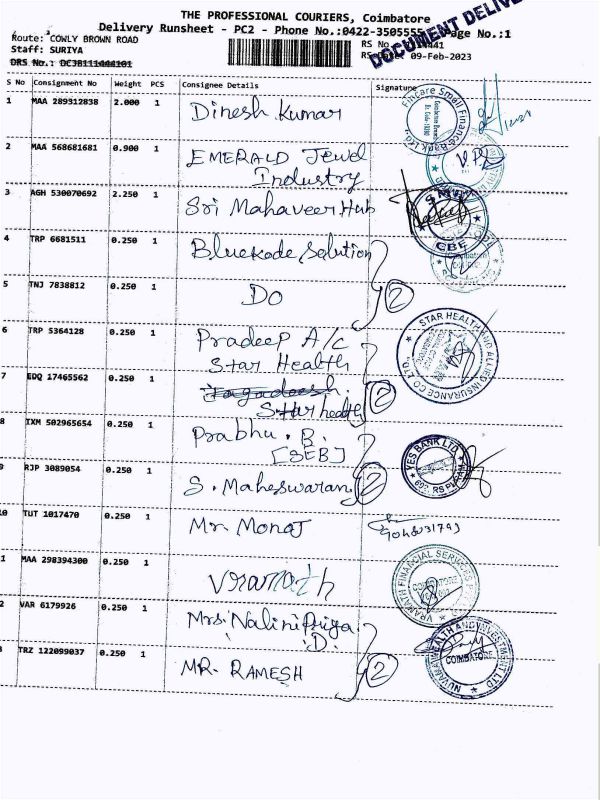 THE PROFESSIONAL COURIERS, Coimbatore
Delivery Runsheet - PC2 - Phone No.:0422-3505555 Page No.:1
DOCUMENT DELIVE
Route: COWLY BROWN ROAD
Staff: SURIYA
RS Date: 09-Feb-2023
S No Consignment No Weight PCS Consignee Details Signature
1 MAA 289312838 2.000 1 Dinesh Kumar
Fincare Small Finance Bank Ltd
2 MAA 568681681 0.900 1 EMERALD Jewel
Industry
3 AGH 530070692 2.250 1 Sri Mahaveer Hub
CBE
4 TRP 6681511 0.250 1 Bluekode Solution
5 TNJ 7838812 0.250 1 DO
2
6 TRP 5364128 0.250 1 Pradeep A/C
Star Health
STAR HEALTH AND ALLIED INSURANCE CO LTD.
7 EDQ 17465562 0.250 1 Jagadeesh
Star health
2
8 IXM 502965654 0.250 1 Prabhu . B.
[SEB]
YES BANK LTD.
9 RJP 3089054 0.250 1 S. Maheswaran
2
10 TUT 1017470 0.250 1 Mr. Monaj
1 MAA 298394300 0.250 1 Vramath
VRAMTH FINANCIAL SERVICES
COIMBATORE
2 VAR 6179926 0.250 1 Mrs. Nalinipriya
.D.
3 TRZ 122099037 0.250 1 MR. RAMESH
2
NUVAMA WEALTH AND INVESTMENT LTD
COIMBATORE